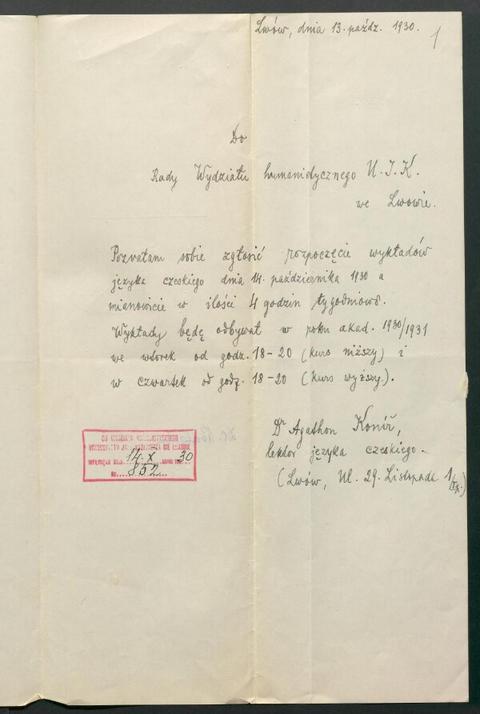 Lwów, dnia 13. paźdz. 1930.
1
Do
Rady Wydziału humanistycznego U. J. K.
we Lwowie.
Pozwalam sobie zgłosić rozpoczęcie wykładów
języka czeskiego dnia 14. października 1930 a
mianowicie w ilości 4 godzin tygodniowo.
Wykłady będę odbywał w roku akad. 1930/1931
we wtorek od godz. 18-20 (kurs niższy) i
w czwartek od godz. 18-20 (kurs wyższy).
Dr Agathon Koníř,
lektor języka czeskiego.
(Lwów, Ul. 29. Listopada
14. X. 30
852